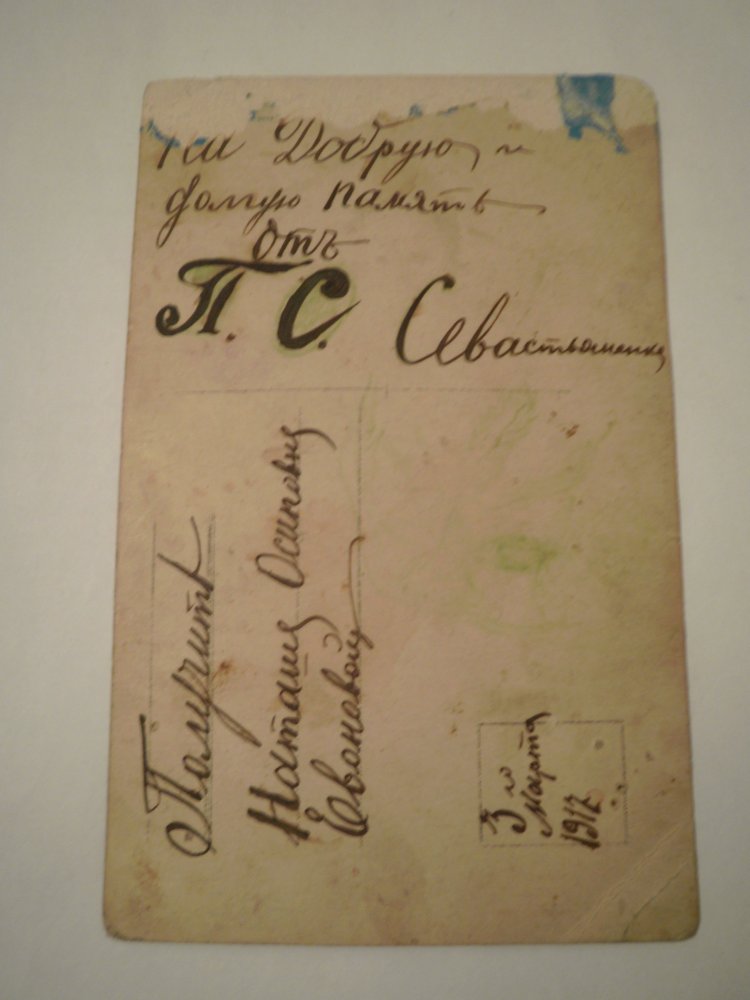 на Добрую и
долгую память
отъ
П. С. Севастьяненко
Получить
Наташе Осиповне
Евановой
3го
Марта
1917